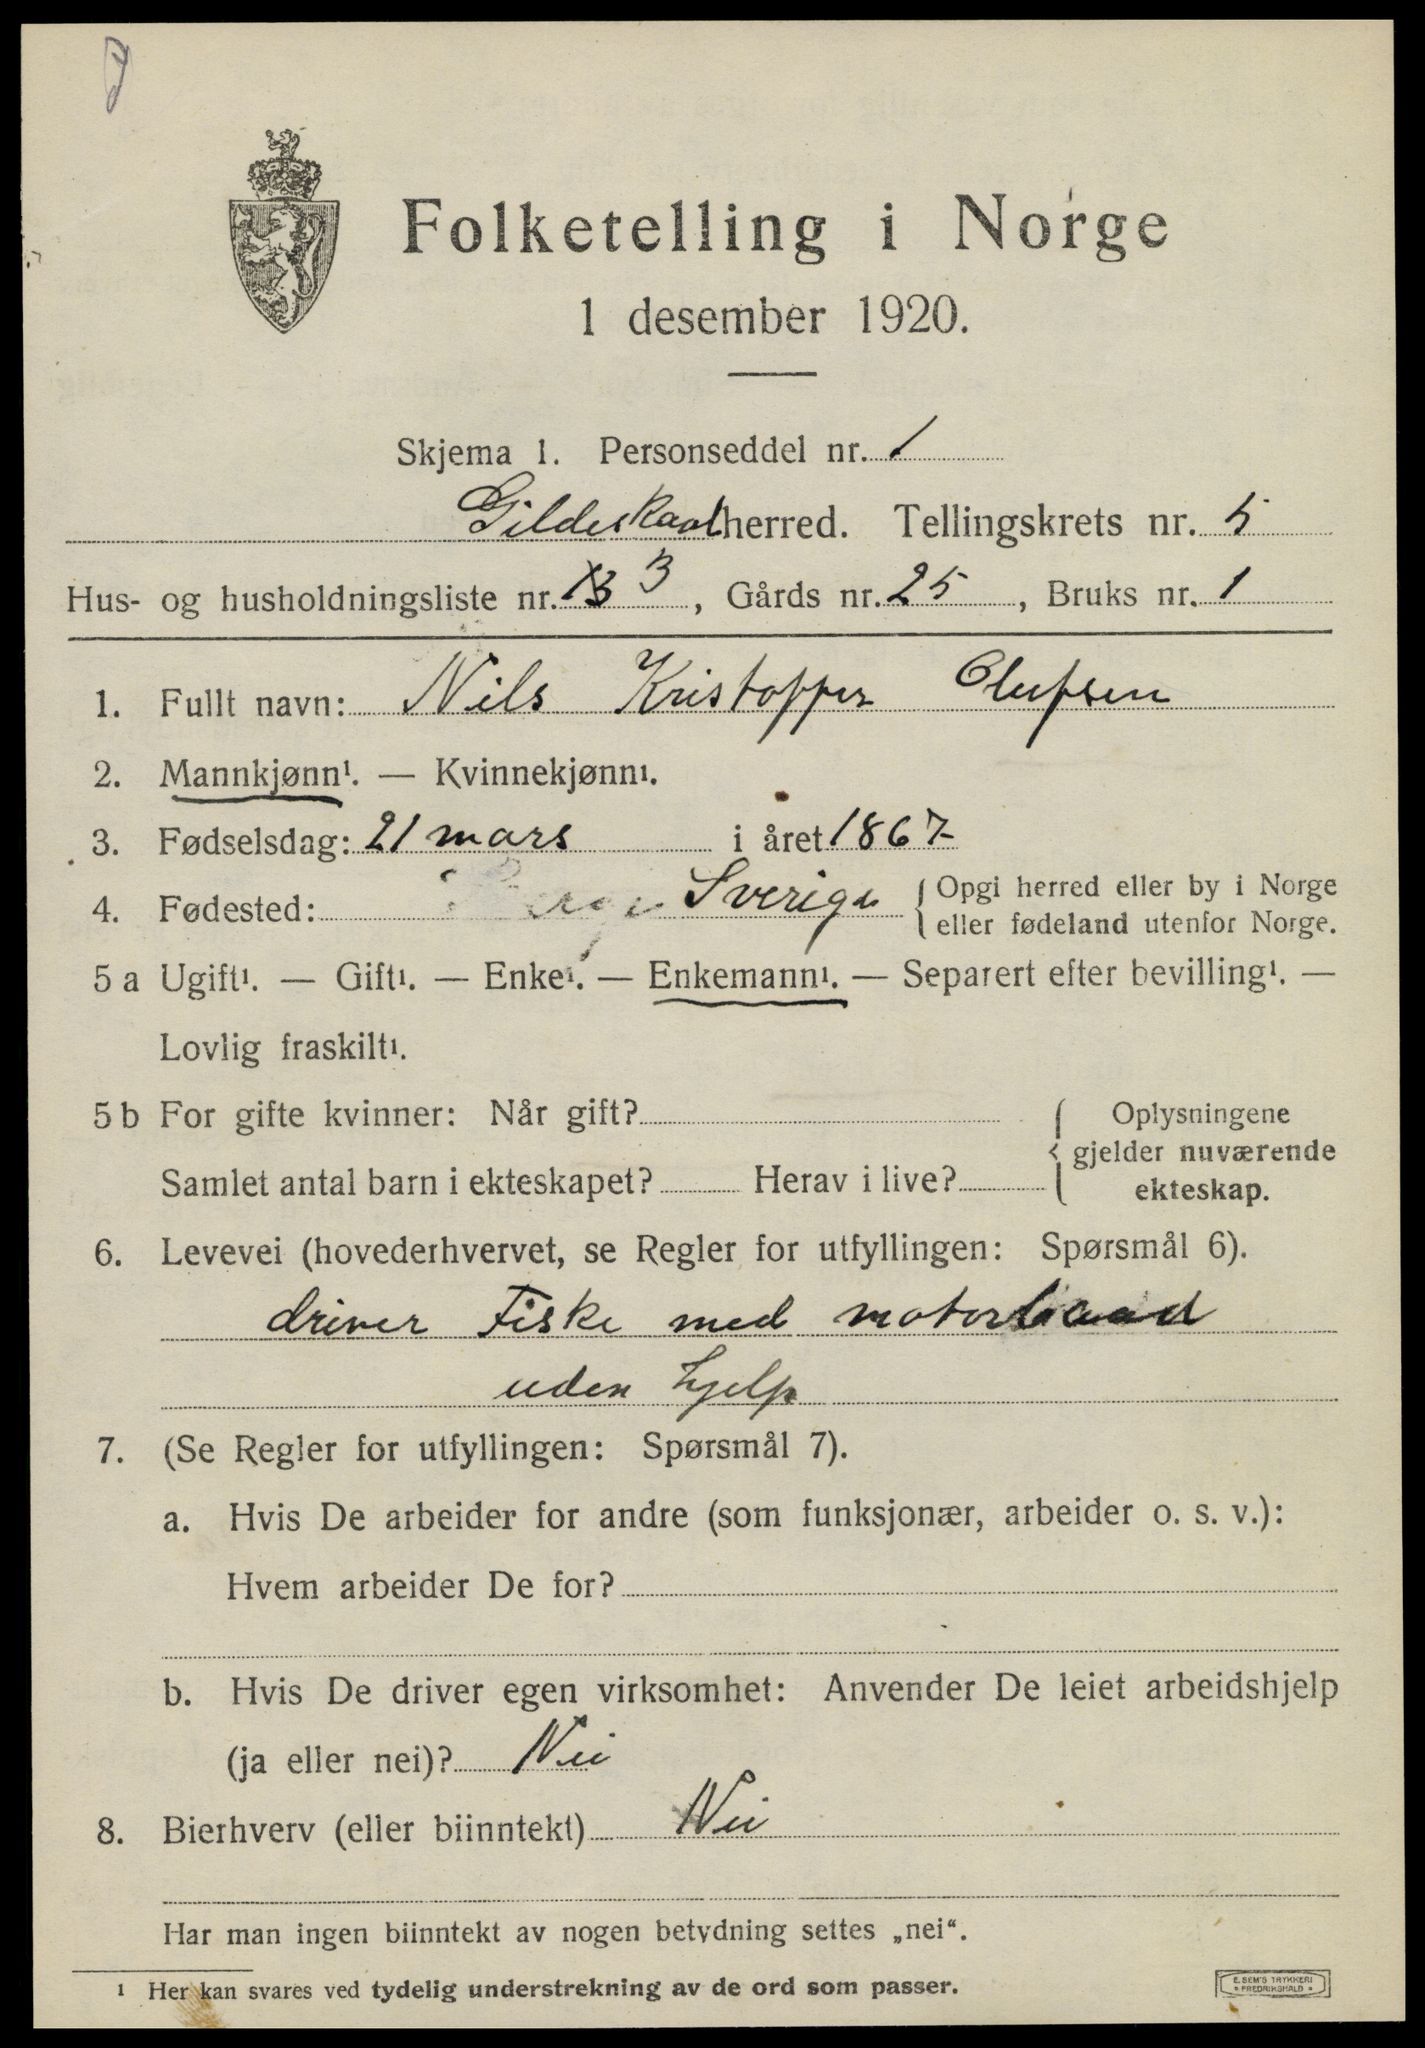 Folketelling i Norge
1 desember 1920.
Skjema 1. Personseddel nr. 1
Gildeskaal herred. Tellingskrets nr. 5
Hus- og husholdningsliste nr. 13 3, Gårds nr. 25, Bruks nr. 1
1. Fullt navn: Nils Kristoffer Olufsen
2. Mannkjønn¹. — Kvinnekjønn¹.
3. Fødselsdag: 21 mars i året 1867
4. Fødested: Sverige { Opgi herred eller by i Norge
eller fødeland utenfor Norge.
5 a Ugift¹. — Gift¹. — Enke¹. — Enkemann¹. — Separert efter bevilling¹. —
Lovlig fraskilt¹.
5 b For gifte kvinner: Når gift? { Oplysningene
gjelder nuværende
Samlet antal barn i ekteskapet? Herav i live? ekteskap.
6. Levevei (hovederhvervet, se Regler for utfyllingen: Spørsmål 6).
driver Fiske med motorbaad
uden hjelp
7. (Se Regler for utfyllingen: Spørsmål 7).
a. Hvis De arbeider for andre (som funksjonær, arbeider o. s. v.):
Hvem arbeider De for?
b. Hvis De driver egen virksomhet: Anvender De leiet arbeidshjelp
(ja eller nei)? Nei
8. Bierhverv (eller biinntekt) Nei
Har man ingen biinntekt av nogen betydning settes „nei“.
¹ Her kan svares ved tydelig understrekning av de ord som passer.
E. SEM'S TRYKKERI
* FREDRIKSHALD *